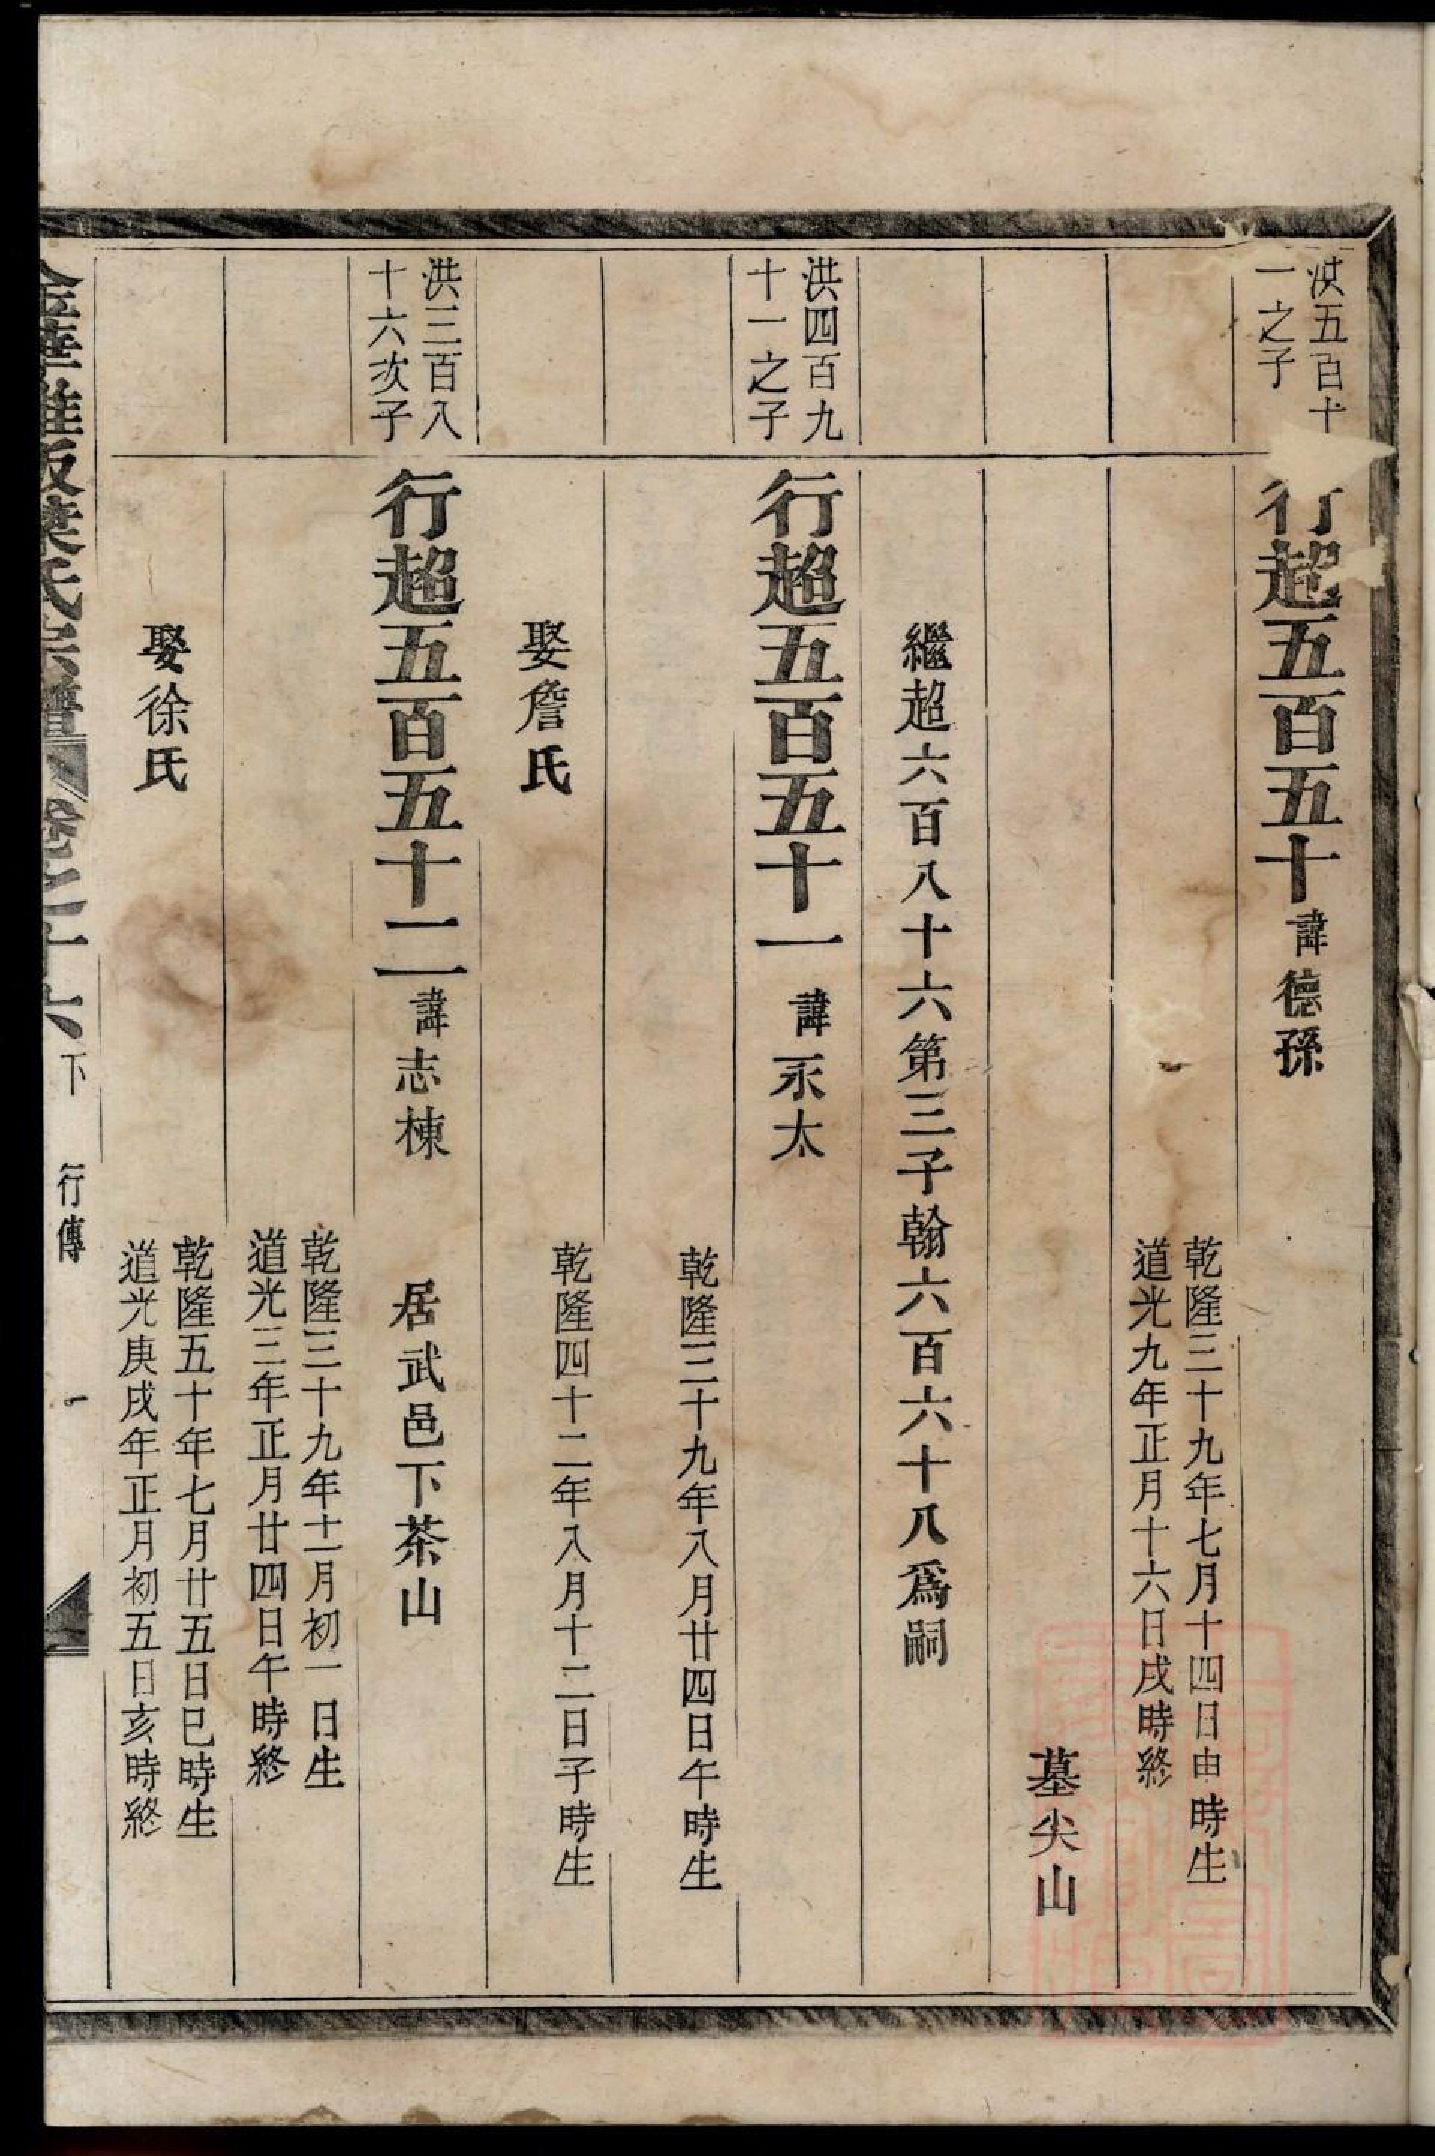 洪五百十
一之子
行超五百五十 諱德孫
乾隆三十九年七月十四日由時生
道光九年正月十六日戌時終
墓尖山
繼超六百八十六第三子翰六百六十八爲嗣
洪四百九
十一之子
行超五百五十一 諱永太
乾隆三十九年八月廿四日午時生
娶詹氏
乾隆四十二年八月十二日子時生
洪三百八
十六次子
行超五百五十二 諱志棟 居武邑下茶山
乾隆三十九年十一月初一日生
道光三年正月廿四日午時終
娶徐氏
乾隆五十年七月廿五日巳時生
道光庚戌年正月初五日亥時終
金華雅畈葉氏宗譜 卷之十六下 行傳 一